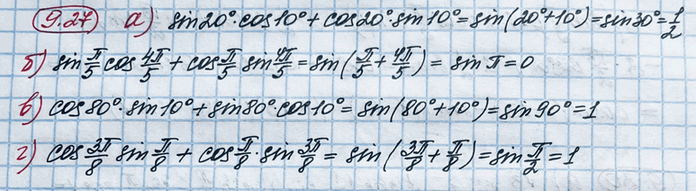 9.27 а) sin20°·cos10° + cos20°·sin10° = sin(20°+10°) = sin30° = 1/2
б) sin π/5 cos 4π/5 + cos π/5 sin 4π/5 = sin(π/5 + 4π/5) = sin π = 0
в) cos80°·sin10° + sin80°·cos10° = sin(80°+10°) = sin90° = 1
г) cos 3π/8 sin π/8 + cos π/8 · sin 3π/8 = sin(3π/8 + π/8) = sin π/2 = 1